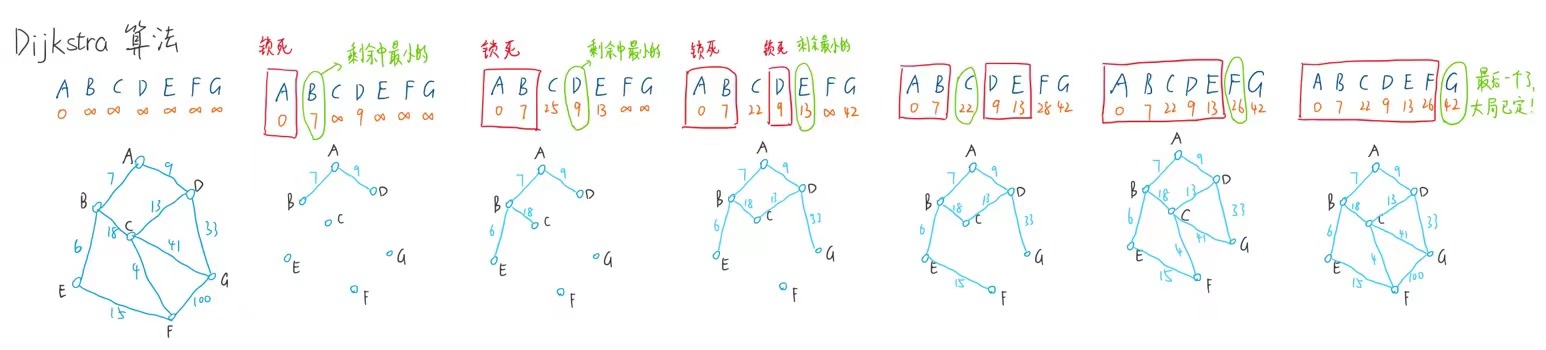 Dijkstra 算法
A B C D E F G
0 ∞ ∞ ∞ ∞ ∞ ∞
A
7 9
B D
13
C
18 33
6 41
4
E G
100
15
F
锁死 剩余中最小的
A B C D E F G
0 7 ∞ 9 ∞ ∞ ∞
A
7 9
B D
C
E G
F
锁死 剩余中最小的
A B C D E F G
0 7 25 9 13 ∞ ∞
A
7 9
B D
18
C
6
E G
F
锁死 锁死 剩余最小的
A B C D E F G
0 7 22 9 13 ∞ 42
A
7 9
B D
18 13
C
6 33
E G
F
A B C D E F G
0 7 22 9 13 28 42
A
7 9
B D
18 13
C
6 33
E G
15
F
A B C D E F G
0 7 22 9 13 26 42
A
7 9
B D
18 13
C
6 33
41
4
E G
15
F
A B C D E F G
0 7 22 9 13 26 42
最后一个了,
大局已定!
A
7 9
B D
18 13
C
6 33
41
4
E G
15 100
F